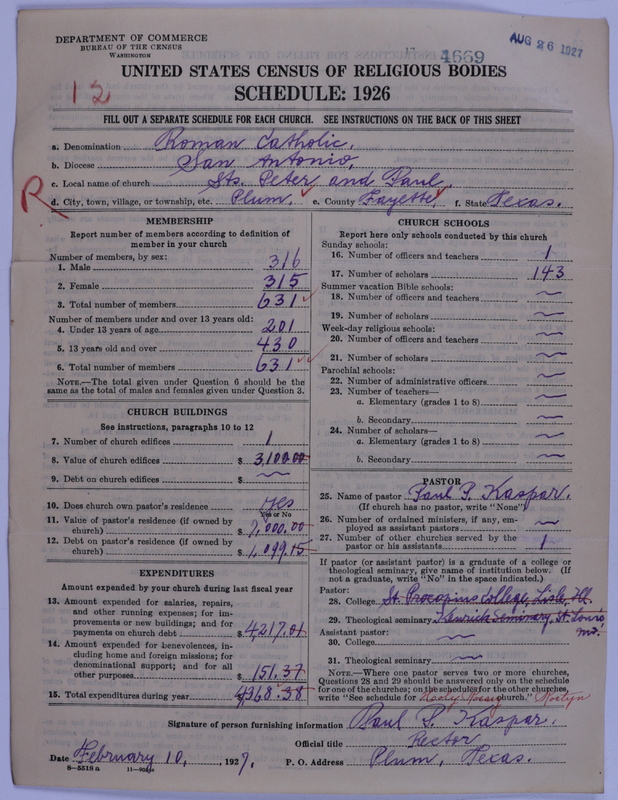 DEPARTMENT OF COMMERCE
BUREAU OF THE CENSUS
WASHINGTON
4669
AUG 26 1927
UNITED STATES CENSUS OF RELIGIOUS BODIES
SCHEDULE: 1926
12
FILL OUT A SEPARATE SCHEDULE FOR EACH CHURCH. SEE INSTRUCTIONS ON THE BACK OF THIS SHEET
a. Denomination Roman Catholic.
b. Diocese San Antonio,
c. Local name of church Sts. Peter and Paul,
R
d. City, town, village, or township, etc. Plum, e. County Fayette, f. State Texas.
MEMBERSHIP
Report number of members according to definition of
member in your church
Number of members, by sex:
1. Male 316
2. Female 315
3. Total number of members 631
Number of members under and over 13 years old:
4. Under 13 years of age 201
5. 13 years old and over 430
6. Total number of members 631
NOTE.—The total given under Question 6 should be the
same as the total of males and females given under Question 3.
CHURCH BUILDINGS
See instructions, paragraphs 10 to 12
7. Number of church edifices 1
8. Value of church edifices $ 3,100.00
9. Debt on church edifices $ ~
10. Does church own pastor's residence yes
Yes or No
11. Value of pastor's residence (if owned by
church) $ 7,000.00
12. Debt on pastor's residence (if owned by
church) $ 1,099.15
EXPENDITURES
Amount expended by your church during last fiscal year
13. Amount expended for salaries, repairs,
and other running expenses; for im-
provements or new buildings; and for
payments on church debt $ 4217.01
14. Amount expended for benevolences, in-
cluding home and foreign missions; for
denominational support; and for all
other purposes $ 151.37
15. Total expenditures during year 4368.38
CHURCH SCHOOLS
Report here only schools conducted by this church
Sunday schools:
16. Number of officers and teachers 1
17. Number of scholars 143
Summer vacation Bible schools:
18. Number of officers and teachers ~
19. Number of scholars ~
Week-day religious schools:
20. Number of officers and teachers ~
21. Number of scholars ~
Parochial schools:
22. Number of administrative officers ~
23. Number of teachers—
a. Elementary (grades 1 to 8) ~
b. Secondary ~
24. Number of scholars—
a. Elementary (grades 1 to 8) ~
b. Secondary ~
PASTOR
25. Name of pastor Paul P. Kaspar.
(If church has no pastor, write "None")
26. Number of ordained ministers, if any, em-
ployed as assistant pastors ~
27. Number of other churches served by the
pastor or his assistants 1
If pastor (or assistant pastor) is a graduate of a college or
theological seminary, give name of institution below. (If
not a graduate, write "No" in the space indicated.)
Pastor:
28. College St. Procopius College, Lisle, Ill.
29. Theological seminary Kenrick Seminary, St. Louis
Mo.
Assistant pastor:
30. College ~
31. Theological seminary ~
NOTE.—Where one pastor serves two or more churches,
Questions 28 and 29 should be answered only on the schedule
for one of the churches; on the schedules for the other churches,
write "See schedule for church."
Signature of person furnishing information Paul P. Kaspar.
Official title Rector
Date February 10, 1927. P. O. Address Plum, Texas.
8—5518 a